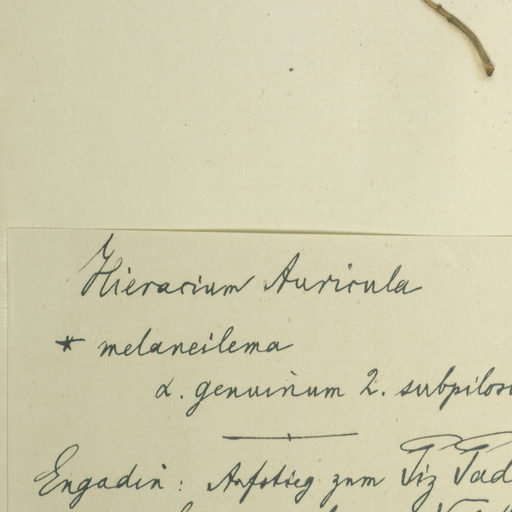 Hieracium Auricula
* melaneilema
α. genuinum 2. subpilosu
Engadin: Aufstieg zum Piz Pad